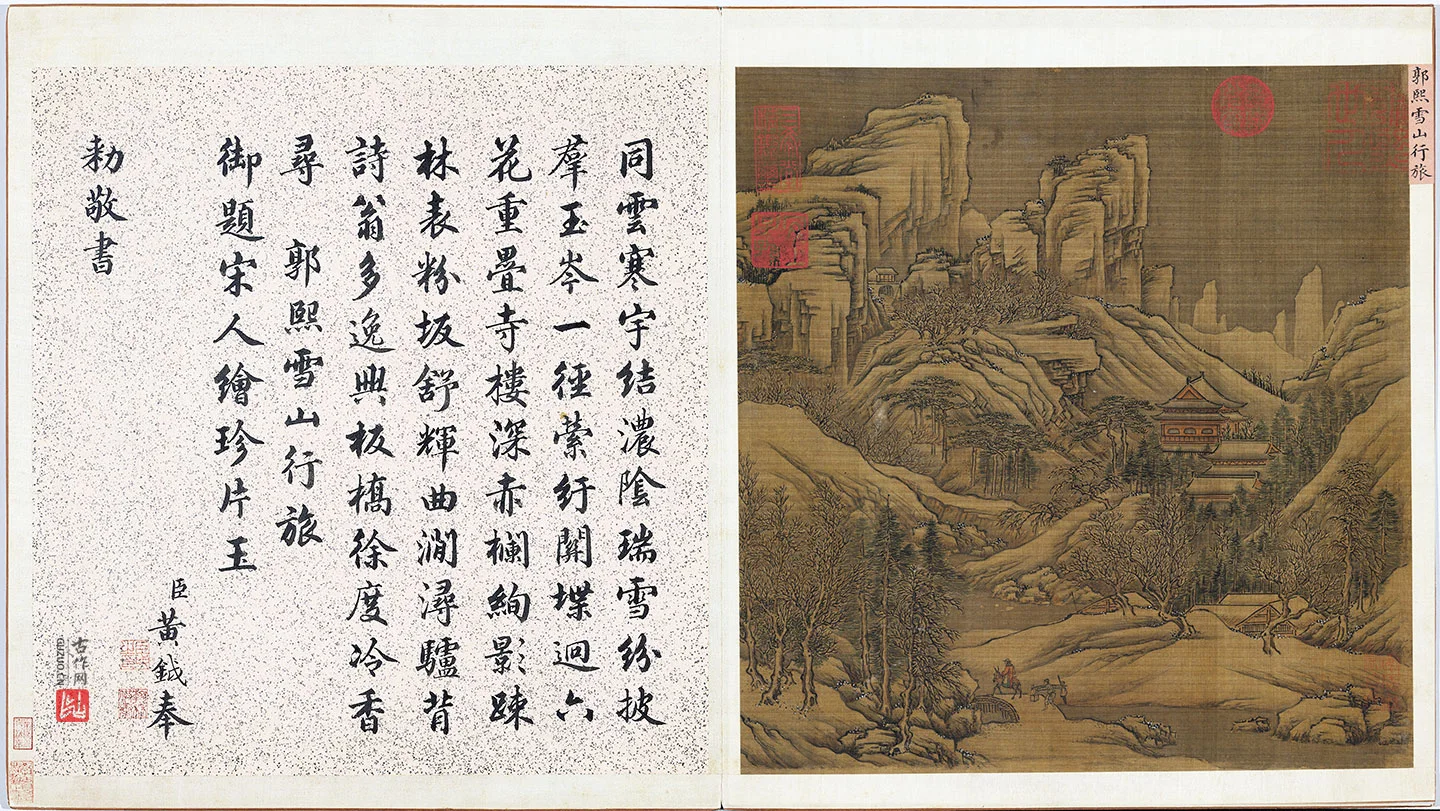 郭熙雪山行旅
同雲寒宇結濃陰瑞雪紛披
羣玉岑一徑縈紆關堞迥六
花重疊寺樓深赤欄絢影踈
林表粉坂舒輝曲澗潯驢背
詩翁多逸興板橋徐度冷香
尋 郭熙雪山行旅
御題宋人繪珍片玉
臣黃鉞奉
勅敬書
古作网
GUZUO.CN